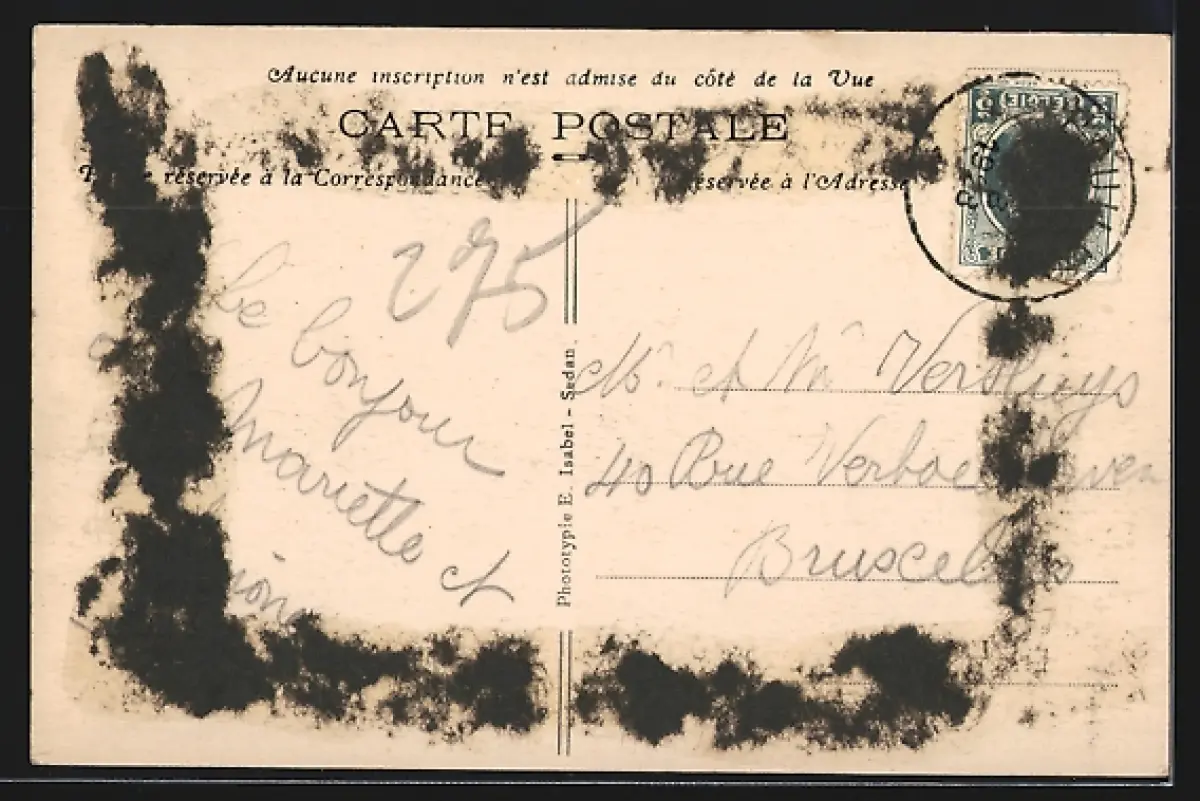 Aucune inscription n'est admise du côté de la Vue
CARTE POSTALE
réservée à la Correspondance
réservée à l'Adresse
275
Le bonjour
Mariette et
Phototypie E. Isabel - Sedan.
Mr. et Me Versluys
40 Rue
Bruxcelles